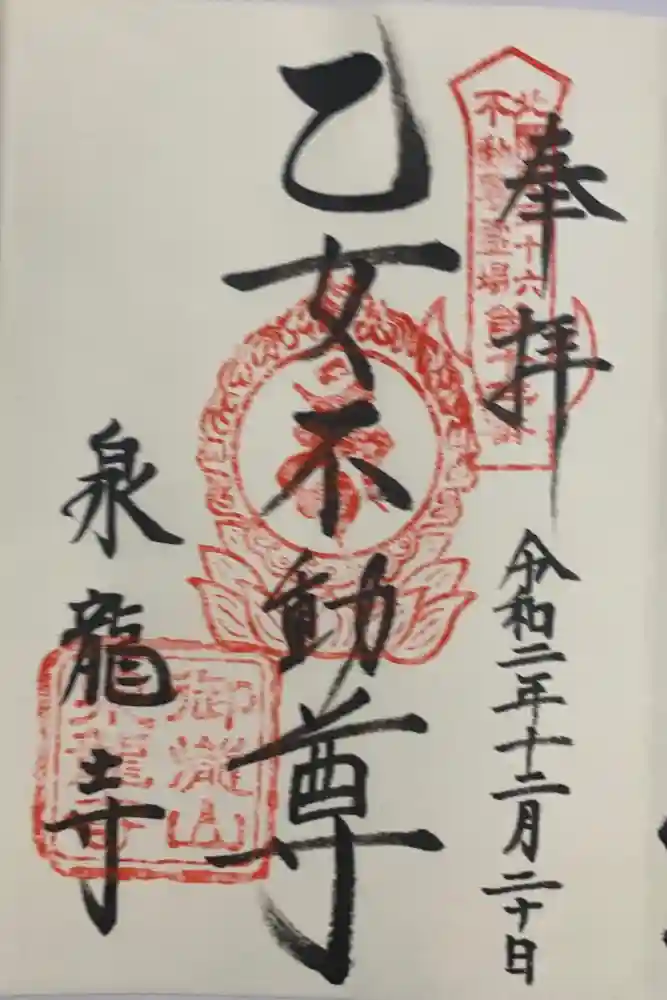 奉拝
令和二年十二月二十日
北関東三十六
不動尊霊場
乙女不動尊
泉龍寺
御瀧山
泉龍寺